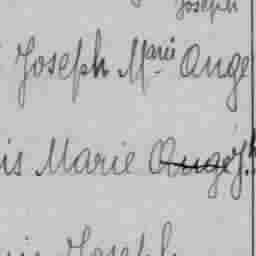 Joseph
Joseph Marie Ange
is Marie Ange J.h
Joseph